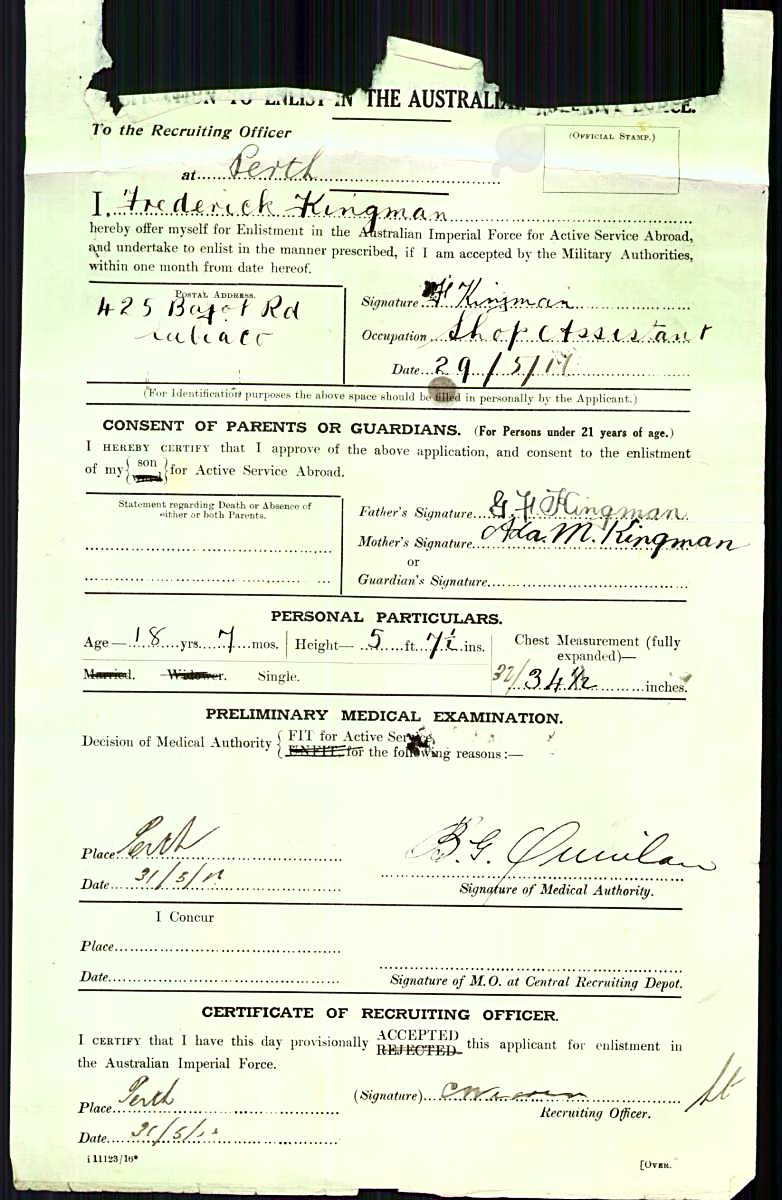 TO ENLIST IN THE AUSTRALIAN
To the Recruiting Officer
(OFFICIAL STAMP.)
at Perth
I, Frederick Kingman
hereby offer myself for Enlistment in the Australian Imperial Force for Active Service Abroad,
and undertake to enlist in the manner prescribed, if I am accepted by the Military Authorities,
within one month from date hereof.
POSTAL ADDRESS.
425 Bagot Rd
Signature F Kingman
Occupation Shop Assistant
Date 29/5/17
(For Identification purposes the above space should be filled in personally by the Applicant.)
CONSENT OF PARENTS OR GUARDIANS. (For Persons under 21 years of age.)
I HEREBY CERTIFY that I approve of the above application, and consent to the enlistment
of my { son } for Active Service Abroad.
Statement regarding Death or Absence of
either or both Parents.
Father's Signature G. H Kingman
Mother's Signature Ada. M. Kingman
or
Guardian's Signature
PERSONAL PARTICULARS.
Age— 18 yrs 7 mos. Height— 5 ft. 7½ ins.
Chest Measurement (fully
expanded)—
34½ inches.
Married. Widower. Single.
PRELIMINARY MEDICAL EXAMINATION.
Decision of Medical Authority { FIT for Active Service.
UNFIT for the following reasons:—
Place Perth
Date 31/5/17
B. G. Quinlan
Signature of Medical Authority.
I Concur
Place
Date
Signature of M.O. at Central Recruiting Depot.
CERTIFICATE OF RECRUITING OFFICER.
I CERTIFY that I have this day provisionally ACCEPTED
REJECTED this applicant for enlistment in
the Australian Imperial Force.
Place Perth
(Signature)
Recruiting Officer.
Date 31/5/17
i 11123/16*
[OVER.